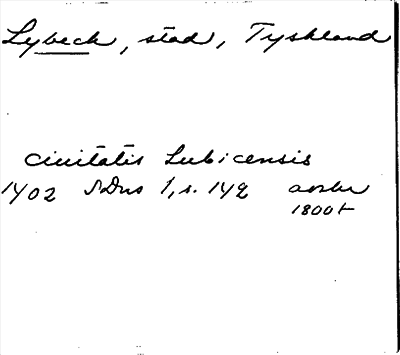 Lybeck, stad, Tyskland
ciuitatis Lubicensis
1402 SDns 1, s. 142 avskr
1800t